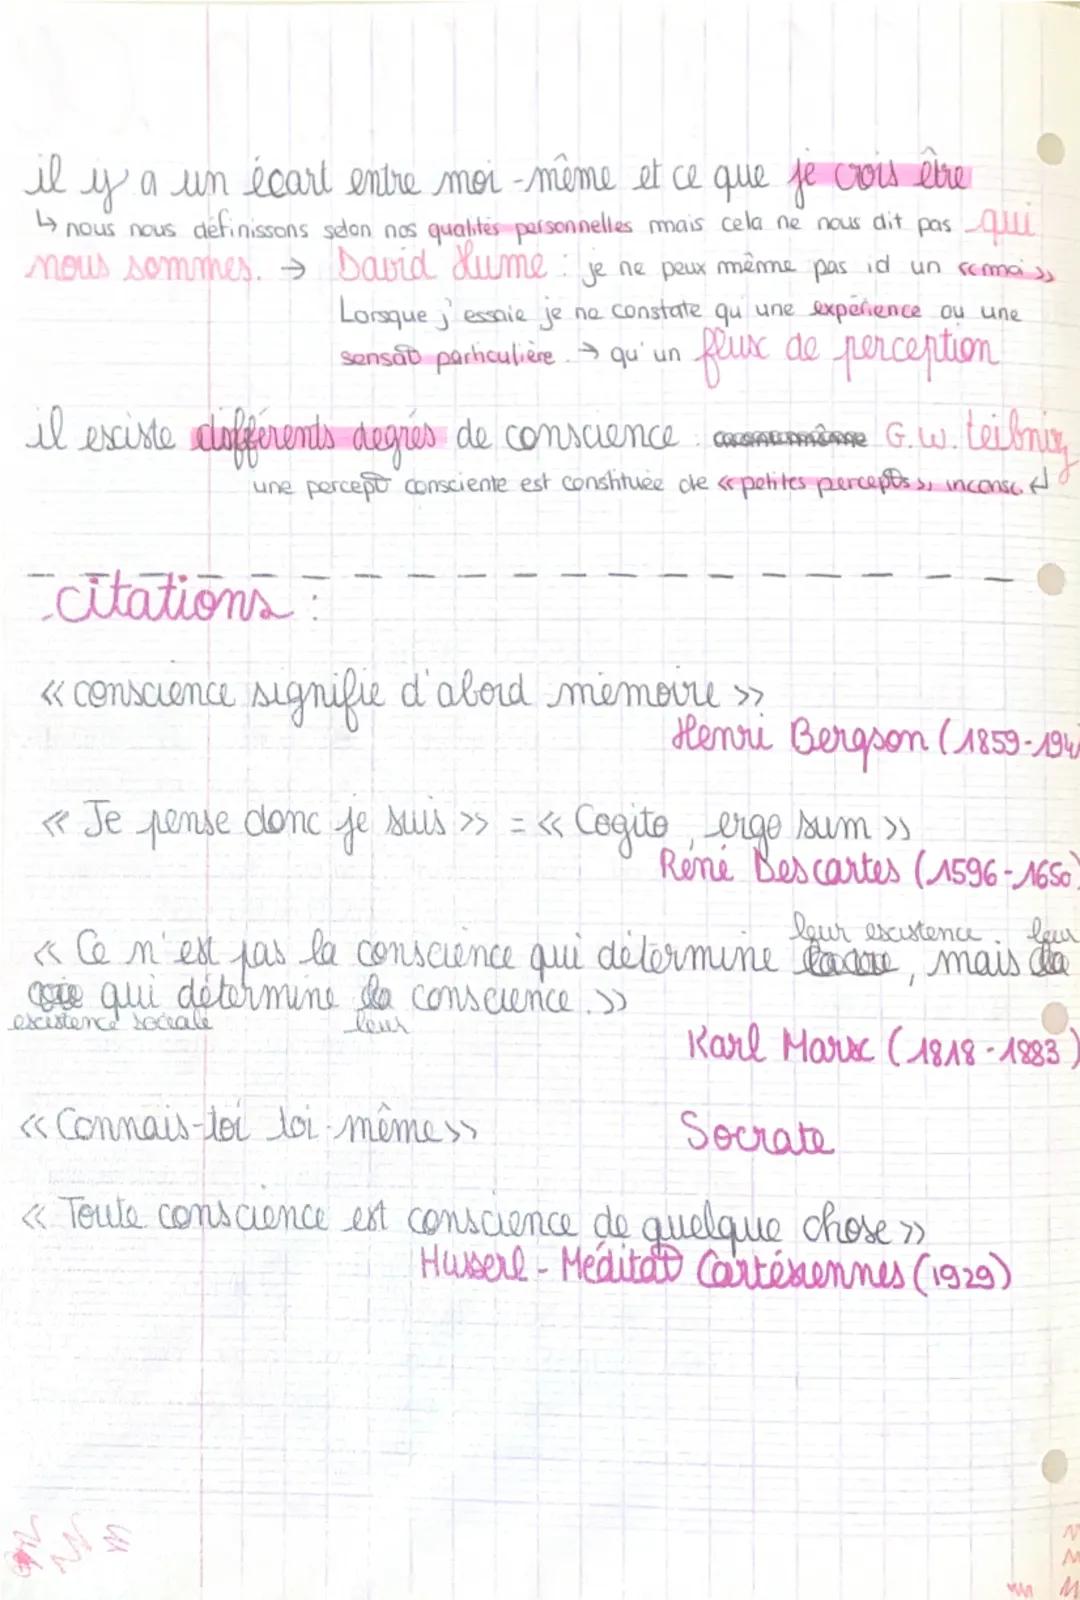 il y a un écart entre moi-même et ce que je crois être
↳ nous nous définissons selon nos qualités personnelles mais cela ne nous dit pas qui
nous sommes. → David Hume : je ne peux même pas id un « moi »
Lorsque j'essaie je ne constate qu'une expérience ou une
sensat° particulière. → qu'un flux de perception
il existe différents degrés de conscience : G.W. Leibniz
une percept° consciente est constituée de « petites percept°s » inconsc. ↵
- citations :
« conscience signifie d'abord mémoire »
Henri Bergson (1859-194
« Je pense donc je suis » = « Cogito, ergo sum »
Réné Descartes (1596-1650)
leur existence leur
« Ce n'est pas la conscience qui détermine , mais
qui détermine la conscience. »
existence sociale leur
Karl Marx (1818-1883)
« Connais-toi toi-même » Socrate
« Toute conscience est conscience de quelque chose »
Husserl - Méditat° Cartésiennes (1929)